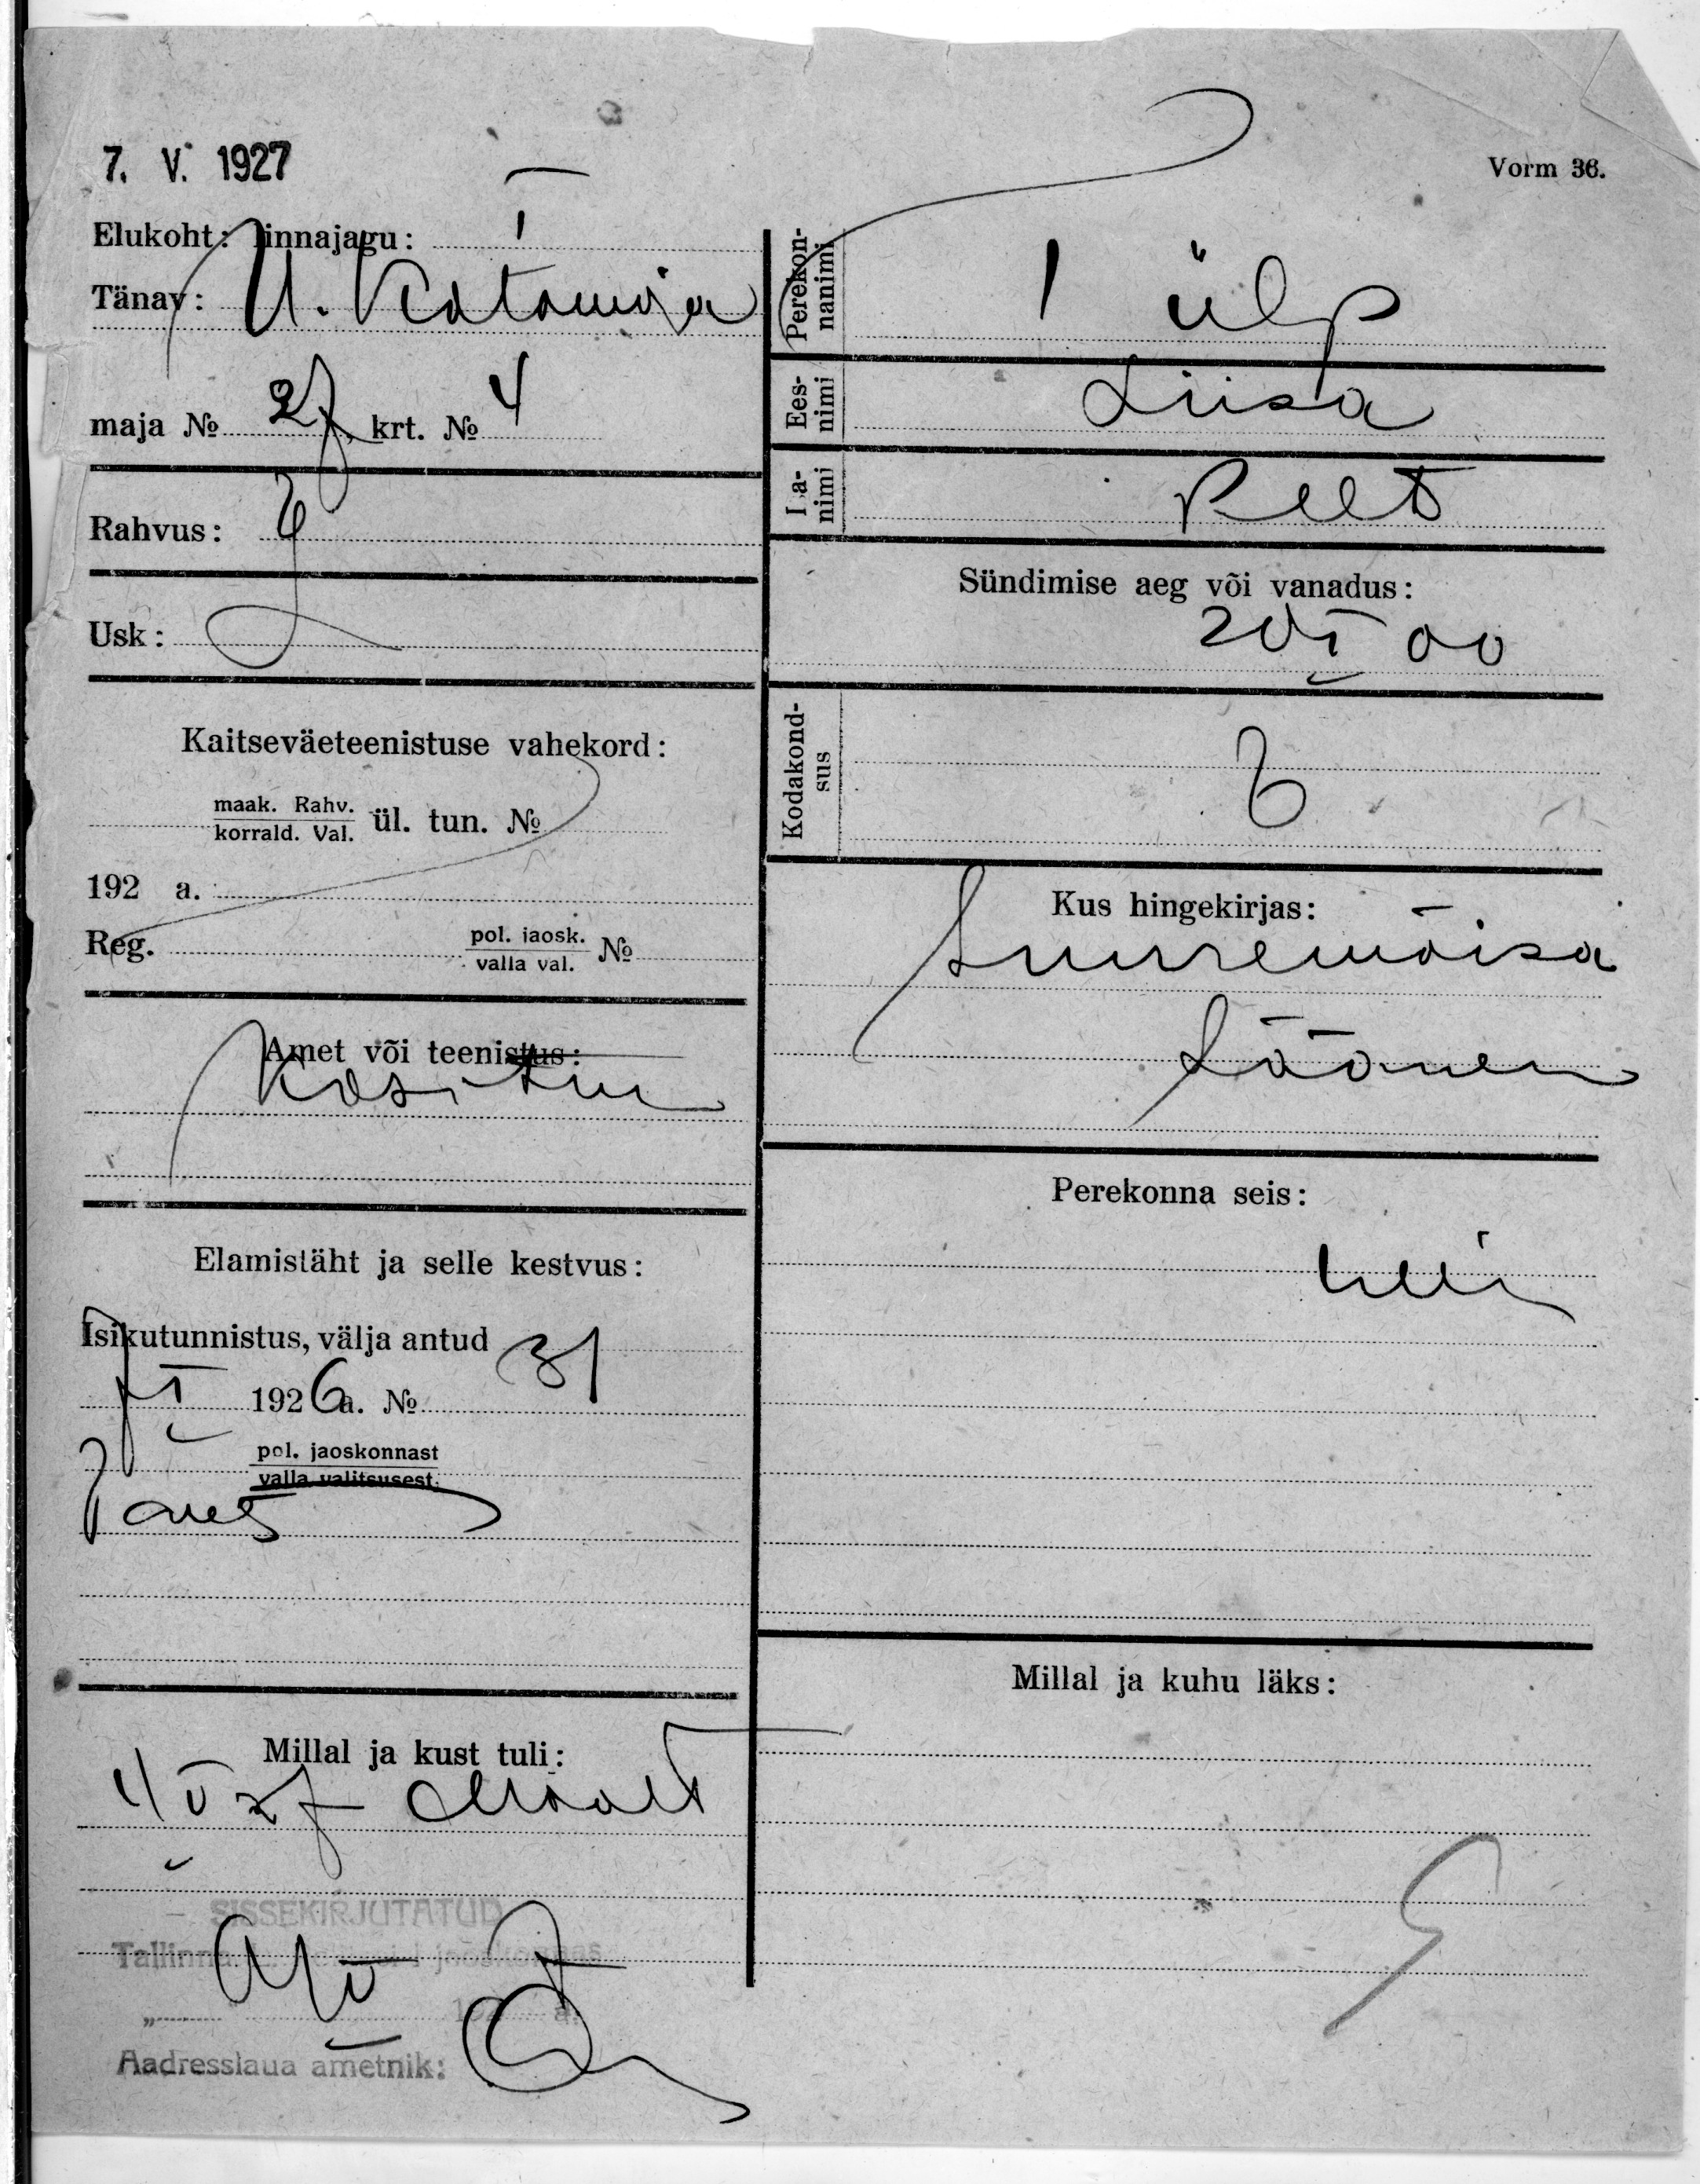 7. V. 1927
Vorm 36.
Elukoht: linnajagu: I
Tänav: U. Kalamaja
maja № 27, krt. № 4
Rahvus: E
Usk: L
Kaitseväeteenistuse vahekord:
maak. Rahv.
korrald. Val. ül. tun. №
192 a.
Reg. pol. jaosk.
valla val. №
Amet või teenistus:
Elamisläht ja selle kestvus:
Isikutunnistus, välja antud 31
I 1926 a. №
pol. jaoskonnast
valla valitsusest.
Millal ja kust tuli:
4 V 27 Maalt
SISSEKIRJUTATUD
Tallinna jaoskonnas
192 a.
Aadresslaua ametnik:
Perekon-
nanimi Tülp
Ees-
nimi Liisa
Isa-
nimi Peet
Sündimise aeg või vanadus:
20 I 00
Kodakond-
sus E
Kus hingekirjas:
Suuremõisa
Läänem
Perekonna seis:
Millal ja kuhu läks: